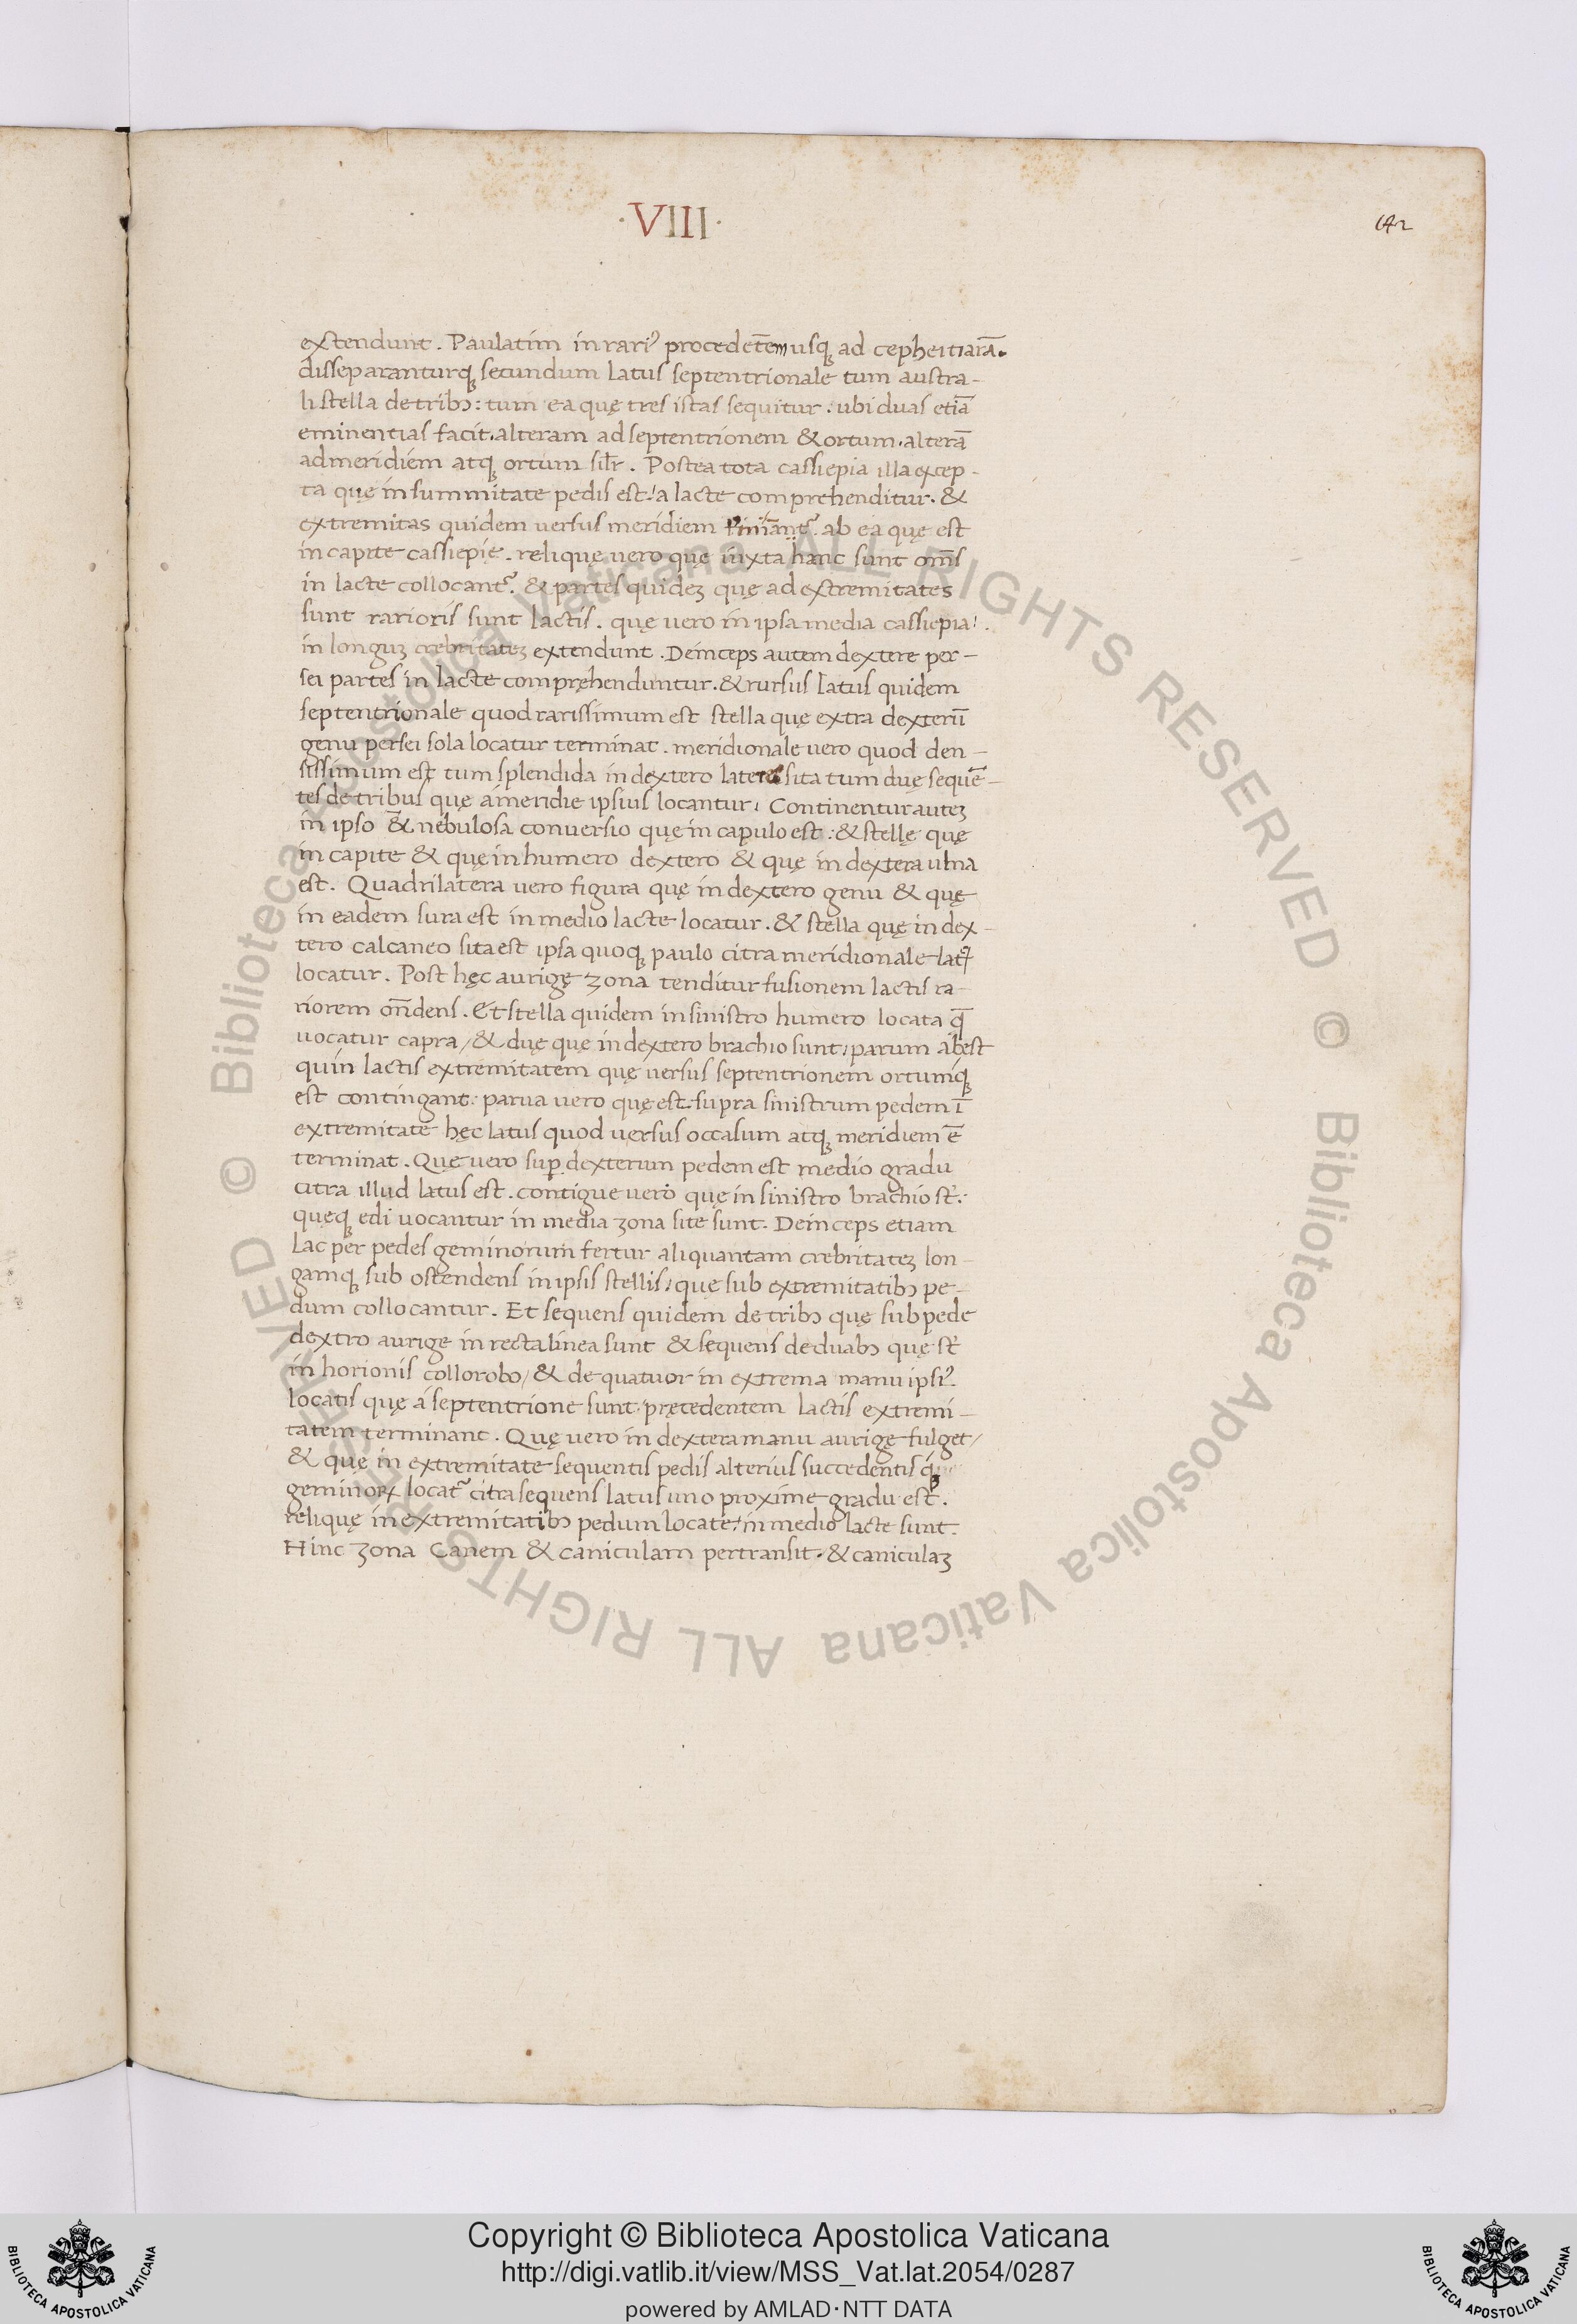 ·VIII·
142
extendunt. Paulatim in rariꝰ procedētem usqꝫ ad cephei tiarā.
disseparanturqꝫ secundum latus septentrionale tum austra-
li stella de tribꝰ: tum ea quę tres istas sequitur. ubi duas etiā
eminentias facit. alteram ad septentrionem & ortum. alterā
ad meridiem atqꝫ ortum sil̄r. Postea tota cassiepia illa excep-
ta quę in summitate pedis est: a lacte comprehenditur. &
extremitas quidem uersus meridiem ab ea quę est
in capite cassiepię. relique uero quę iuxta hanc sunt om̄s
in lacte collocantr̃. & partes quidеꝫ quę ad extremitates
sunt rarioris sunt lactis. quę uero in ipsa media cassiepia:.
in longuꝫ crebritateꝫ extendunt. Deinceps autem dextere per-
sei partes in lacte compręhenduntur. & rursus latus quidem
septentrionale quod rarissimum est stella quę extra dexterū
genu persei sola locatur terminat. meridionale uero quod den-
sissimum est tum splendida in dextero latere sita tum duę sequē-
tes de tribus quę á meridie ipsius locantur. Continentur auteꝫ
in ipso & nebulosa conuersio quę in capulo est: & stellę quę
in capite & quę in humero dextero & quę in dextera ulna
est. Quadrilatera uero figura quę in dextero genu & quę
in eadem sura est in medio lacte locatur. & stella quę in dex-
tero calcaneo sita est ipsa quoqꝫ paulo citra meridionale latꝰ
locatur. Post hęc aurigę zona tenditur fusionem lactis ra-
riorem on̄dens. Et stella quidem in sinistro humero locata q̄
uocatur capra/ & duę quę in dextero brachio sunt/ parum abest
quin lactis extremitatem quę uersus septentrionem ortumqꝫ
est contingant: parua uero quę est supra sinistrum pedem ī
extremitate hęc latus quod uersus occasum atqꝫ meridiem ē
terminat. Quę uero suꝑ dexterum pedem est medio gradu
citra illud latus est. contigue uero quę in sinistro brachio st̄:
quęqꝫ edi uocantur in media zona site sunt. Deinceps etiam
Lac per pedes geminorum fertur aliquantam crebritateꝫ lon-
gamqꝫ sub ostendens in ipsis stellis/ quę sub extremitatibꝰ pe-
dum collocantur. Et sequens quidem de tribꝰ quę sub pede
dextro aurige in recta linea sunt & sequens de duabꝰ quę st̄
in horionis collorobo/ & de quatuor in extrema manu ipsiꝰ.
locatis quę á septentrione sunt pręcedentem lactis extremi-
tatem terminant. Quę uero in dextera manu aurigę fulget/
& quę in extremitate sequentis pedis alterius succedentis
geminoꝝ locatr̃ citra sequens latus uno proxime gradu est.
reliquę in extremitatibꝰ pedum locate: in medio lacte sunt.
Hinc zona Canem & caniculam pertransit. & caniculaꝫ
Copyright © Biblioteca Apostolica Vaticana
http://digi.vatlib.it/view/MSS_Vat.lat.2054/0287
powered by AMLAD·NTT DATA
© Biblioteca Apostolica Vaticana ALL RIGHTS RESERVED
© Biblioteca Apostolica Vaticana ALL RIGHTS RESERVED
BIBLIOTECA APOSTOLICA VATICANA
BIBLIOTECA APOSTOLICA VATICANA